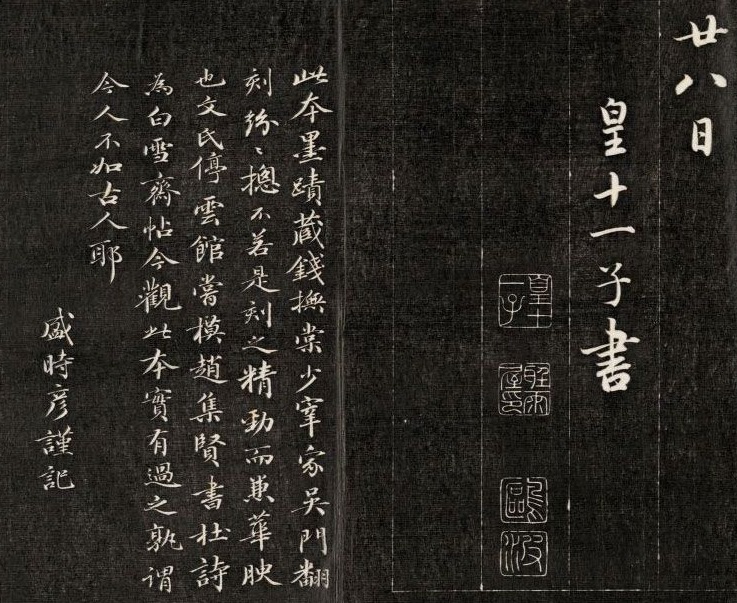 廿八日
皇十一子書
皇十一子
鷗波
此本墨蹟藏錢撫棠少宰家吳門翻
刻紛〻摠不若是刻之精勁而兼華映
也文氏停雲館嘗模趙集賢書杜詩
為白雪齋帖今觀此本實有過之孰謂
今人不如古人耶
盛時彥謹記